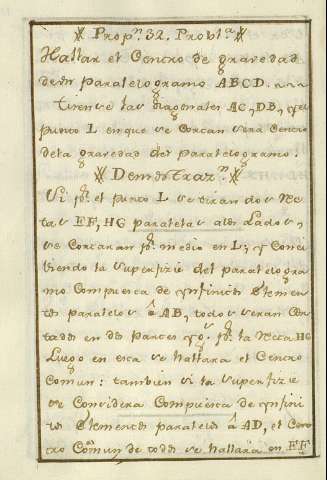 Propn. 32. Probla.
Hallar el Centro de gravedad
de un paralelogramo ABCD.
tirense las diagonales AC, DB, y el
punto L en que se Cortan sera Centro
dela gravedad del Paralelogramo.
Demostrazn.
Si pr. el punto L se tiran dos Rec
tas EF, HG paralelas alos Lados,
se Cortaran pr. medio en L; y Conci
biendo la superfizie del paralelogra
mo Compuesta de ynfinitos Elemen
tos paralelos â AB, todos seran Cor
tados en dos partes ys. pr. la Recta HG
Luego en esta se hallara el Centro
Comun: tambien si la superfizie
se Concidera Compuesta de ynfini
tos Elementos paralelos â AD, el Cen
tro Comun de todos se hallara en EF